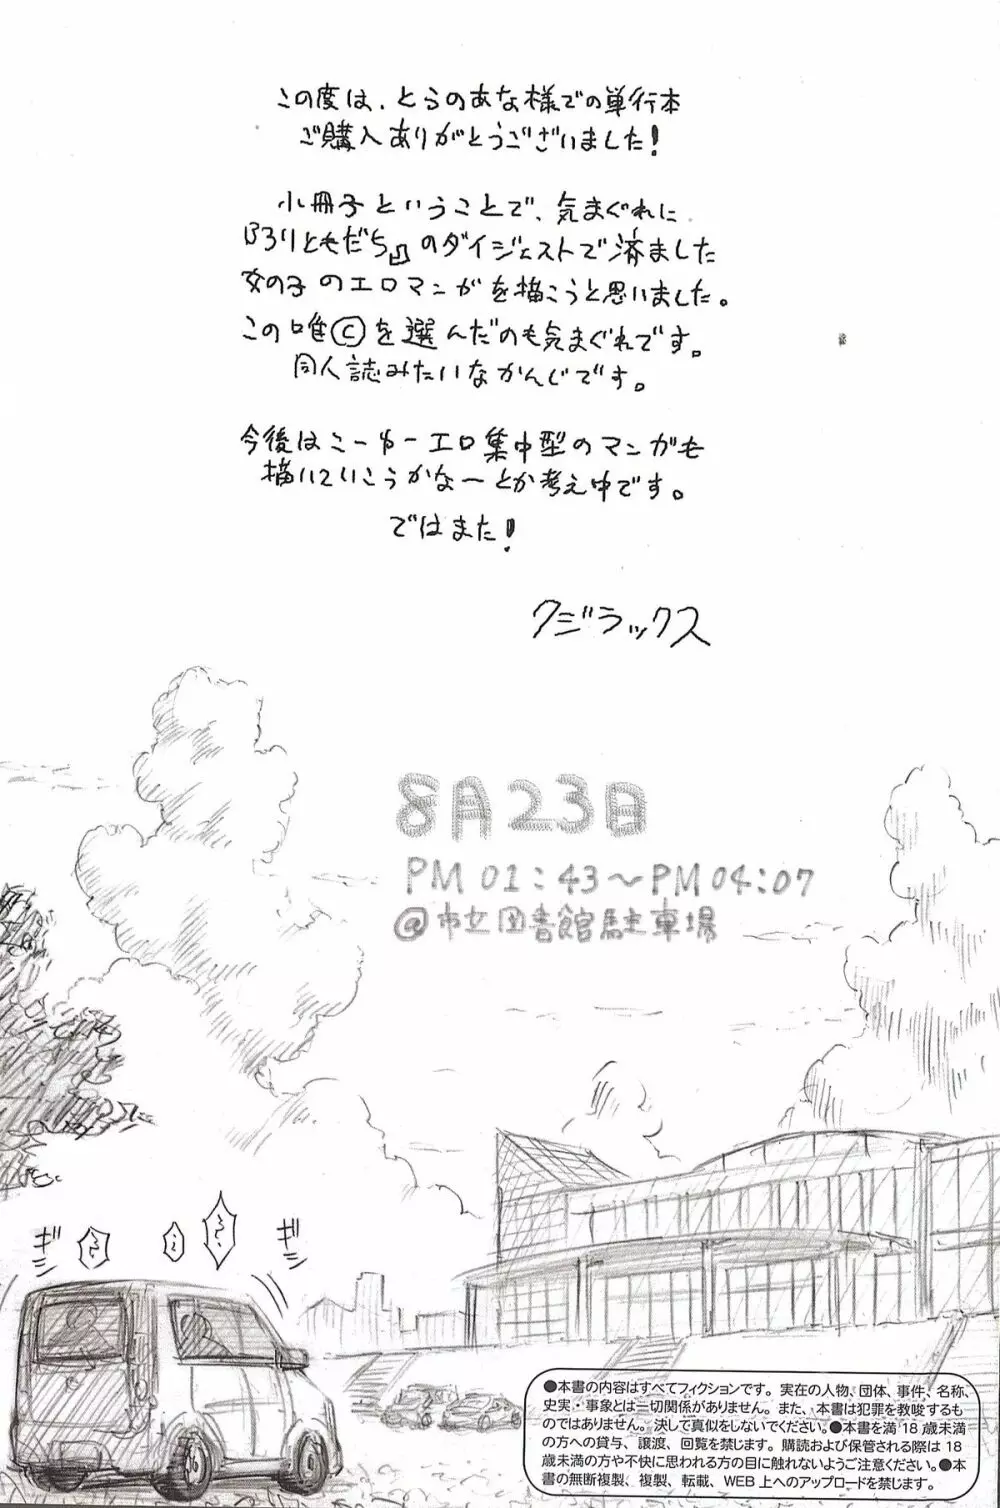 この度は、とらのあな様での単行本
ご購入ありがとうございました!
小冊子ということで、気まぐれに
「ろりともだち」のダイジェストで済ました
女の子のエロマンガを描こうと思いました。
この唯©を選んだのも気まぐれです。
同人誌みたいなかんじです。
今後はこーゆーエロ集中型のマンガも
描いていこうかなーとか考え中です。
ではまた!
クジラックス
8月23日
PM 01:43〜PM 04:07
@市立図書館駐車場
ギシ
ギシ
●本書の内容はすべてフィクションです。実在の人物、団体、事件、名称、
史実・事象とは一切関係がありません。また、本書は犯罪を教唆するも
のではありません。決して真似をしないでください。●本書を満18歳未満
の方への貸与、譲渡、回覧を禁じます。購読および保管される際は18
歳未満の方や不快に思われる方の目に触れないようご注意ください。●本
書の無断複製、複製、転載、WEB上へのアップロードを禁じます。